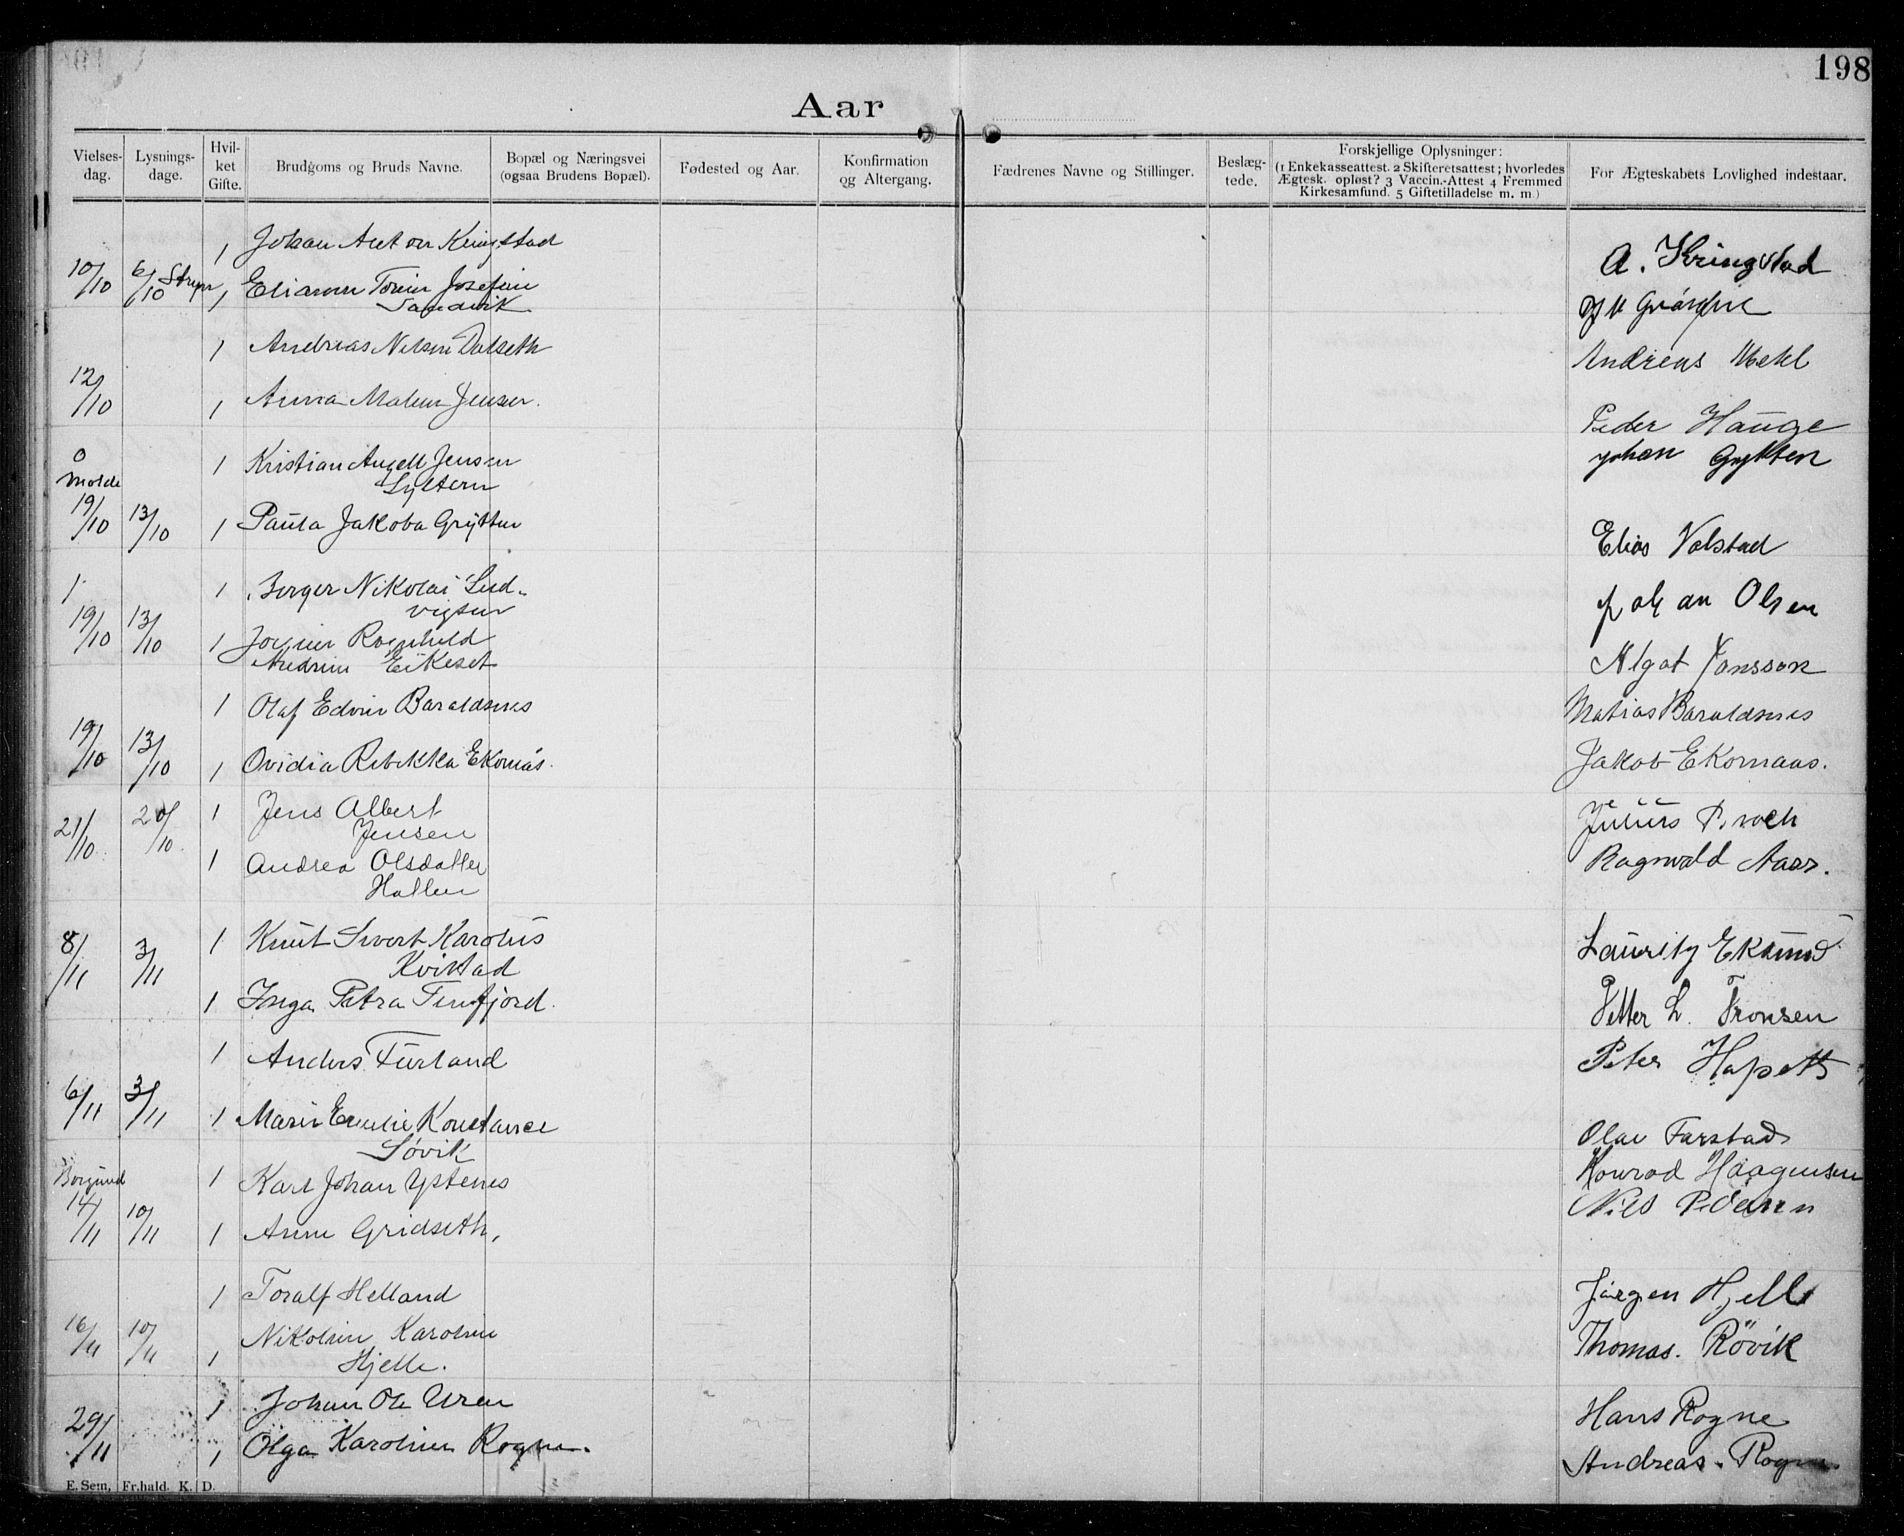 198
Aar
Vielses-dag.
Lysnings-dage.
Hvil-ket Gifte.
Brudgoms og Bruds Navne.
Bopæl og Næringsvei (ogsaa Brudens Bopæl).
Fødested og Aar.
Konfirmation og Altergang.
Fædrenes Navne og Stillinger.
Beslæg-tede.
Forskjellige Oplysninger: (1 Enkekasseattest. 2 Skifteretsattest; hvorledes Ægtesk. opløst? 3 Vaccin.-Attest 4 Fremmed Kirkesamfund. 5 Giftetilladelse m. m.)
For Ægteskabets Lovlighed indestaar.
1 Johan Anton Kringstad
A. Kringstad
10/10 6/10 1 Josefine
Sandvik
1 Andreas Nilsen Dalseth
Andreas
12/10 1 Anna Jensen.
Peder Hauge
Molde 1 Kristian Angell Jensen
Johan Grytten
19/10 13/10 1 Paula Jakoba Grytten
Elias Valstad
1 Birger Nikolai Lud-
vigsen
Johan Olsen
19/10 13/10 1 Ragnhild
Eikeset
Algot Jonsson
1 Olaf Edvin Baraldsnes
Matias Baraldsnes
19/10 13/10 1 Ovidia Rebekka Ekornås.
Jakob Ekornaas.
21/10 20/10 1 Jens Albert
Jensen
Julius
1 Andrea Olsdatter
Hallen
Ragnvald Aars.
8/11 3/11 1 Knut Sivert Karolus
Kvikstad
Lauritz
1 Inga Petra Finfjord.
Petter L. Tronsen
1 Anders Furland
Peter
6/11 3/11 1 Marie Emelie Konstance
Søvik
Olav Farstad
Borgund 1 Karl Johan Ystenes
Konrad Haagensen
14/11 10/11 1 Anne Gridseth,
Nils Pedersen
1 Toralf Helland
Jørgen Hjelle
16/11 10/11 1 Nikoline Karoline
Hjelle.
Thomas. Rövik
1 Johan Ole Uren
Hans Rogne
29/11 1 Olga Karoline Rogne.
Andreas. Rogne
E. Sem, Fr.hald. K. D.